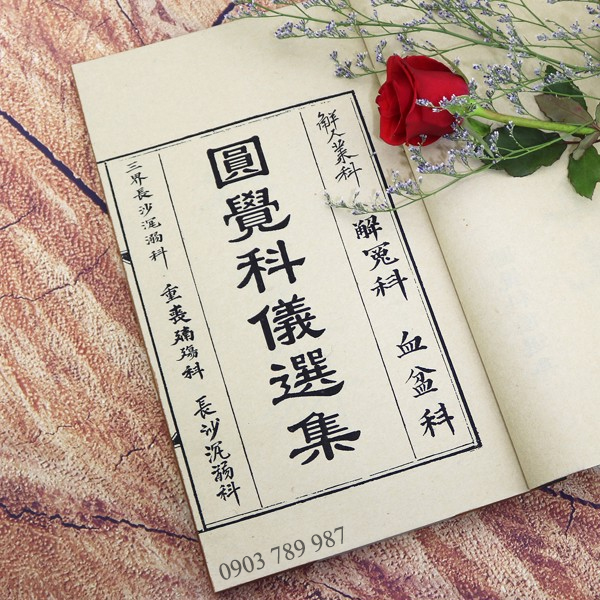 觧 科
解冤科
血盆科
圓覺科儀選集
三界長沙沉溺科
重喪 科
長沙沉溺科
0903 789 987